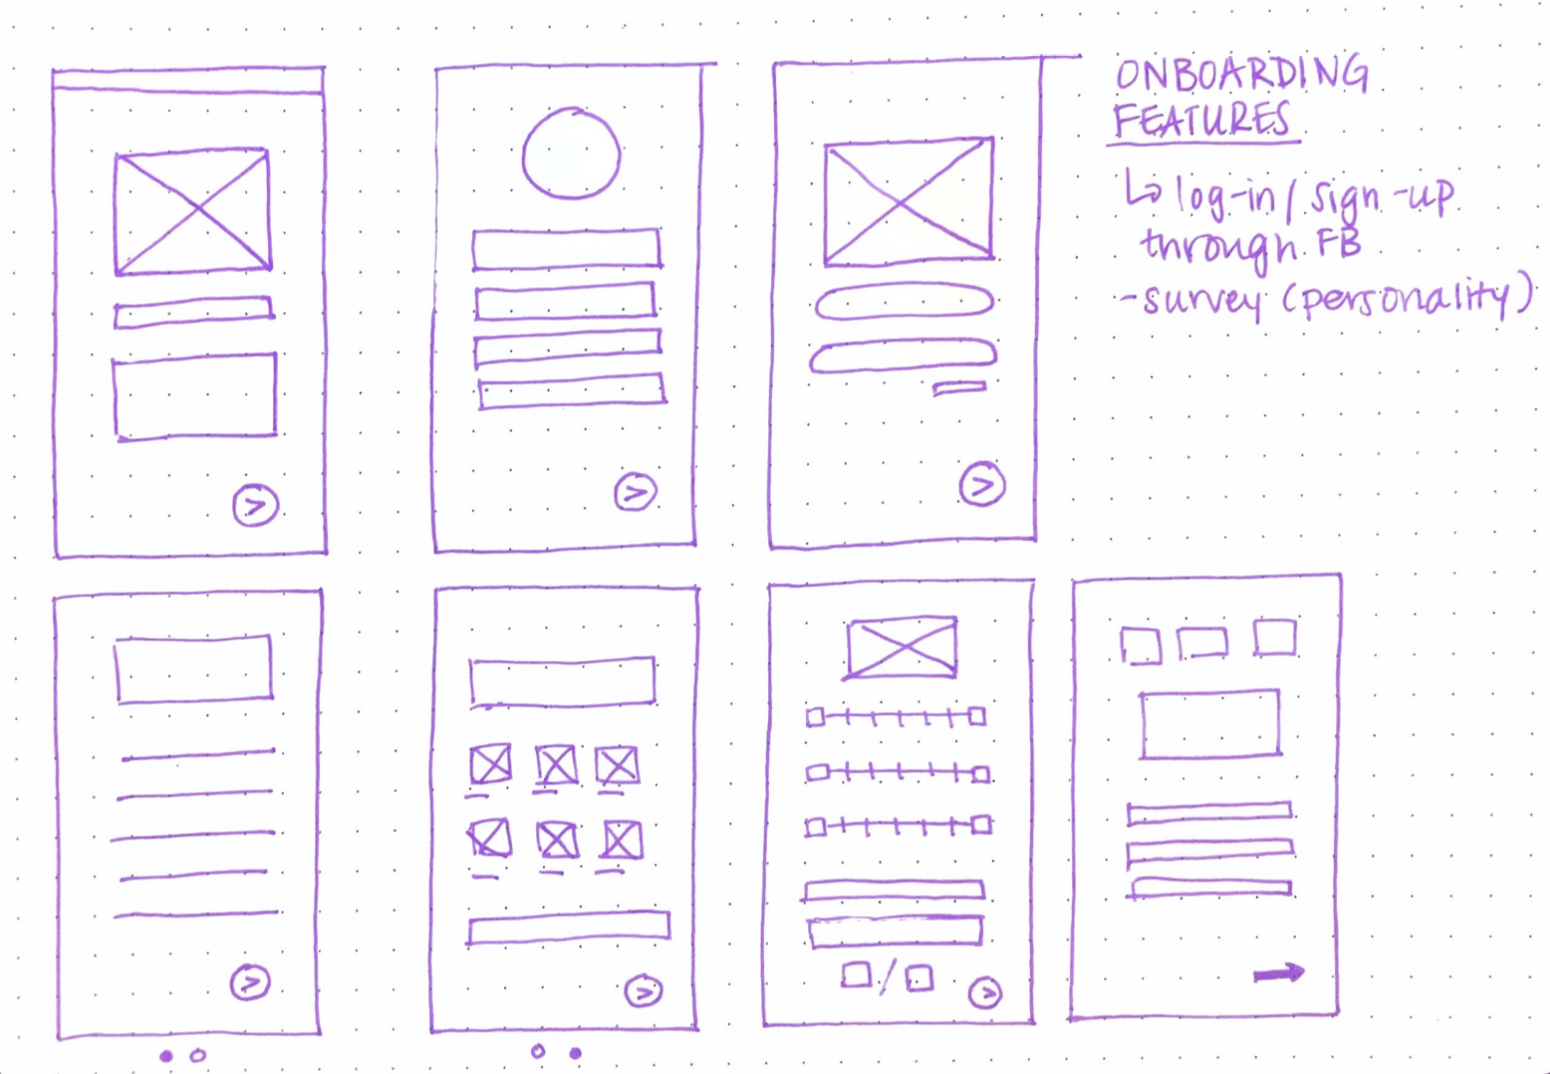 ONBOARDING
FEATURES
↳ log-in / sign-up
through FB
- survey (personality)